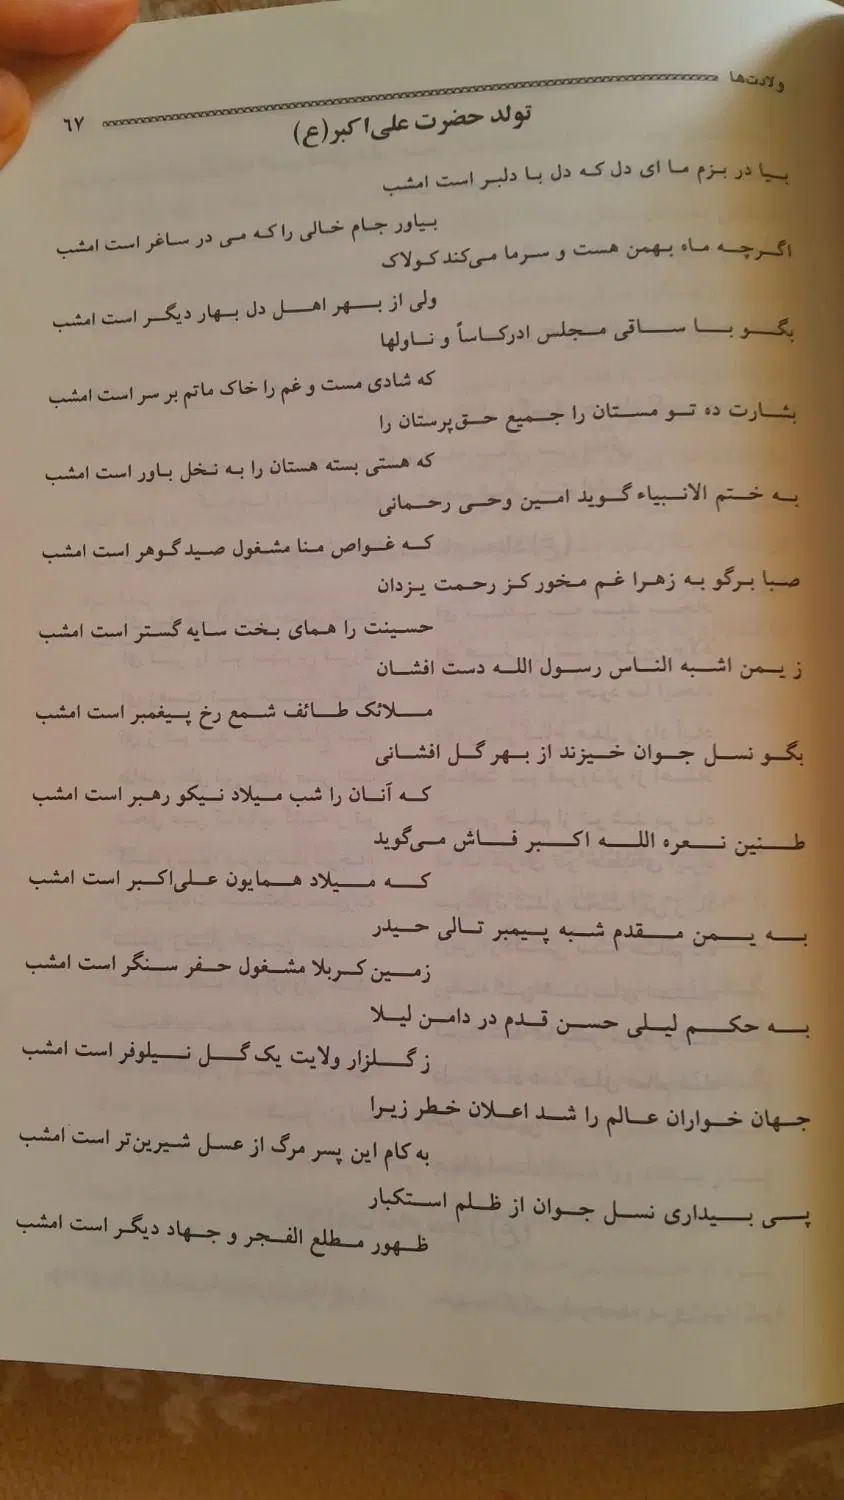 ولادت‌ها
٦٧
تولد حضرت علی‌اکبر(ع)
بیا در بزم ما ای دل که دل با دلبر است امشب
بیاور جام خالی را که می در ساغر است امشب
اگرچه ماه بهمن هست و سرما می‌کند کولاک
ولی از بهر اهل دل بهار دیگر است امشب
بگو با ساقی مجلس ادرکاساً و ناولها
که شادی مست و غم را خاک ماتم بر سر است امشب
بشارت ده تو مستان را جمیع حق‌پرستان را
که هستی بسته هستان را به نخل باور است امشب
به ختم الانبیاء گوید امین وحی رحمانی
که غواص منا مشغول صید گوهر است امشب
صبا برگو به زهرا غم مخور کز رحمت یزدان
حسینت را همای بخت سایه گستر است امشب
ز یمن اشبه الناس رسول الله دست افشان
ملائک طائف شمع رخ پیغمبر است امشب
بگو نسل جوان خیزند از بهر گل افشانی
که آنان را شب میلاد نیکو رهبر است امشب
طنین نعره الله اکبر فاش می‌گوید
که میلاد همایون علی‌اکبر است امشب
به یمن مقدم شبه پیمبر تالی حیدر
زمین کربلا مشغول حفر سنگر است امشب
به حکم لیلی حسن قدم در دامن لیلا
ز گلزار ولایت یک گل نیلوفر است امشب
جهان خواران عالم را شد اعلان خطر زیرا
به کام این پسر مرگ از عسل شیرین‌تر است امشب
پی بیداری نسل جوان از ظلم استکبار
ظهور مطلع الفجر و جهاد دیگر است امشب